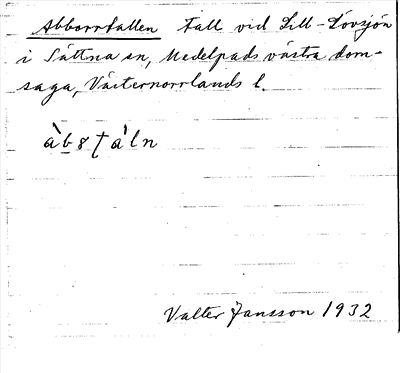 Abborrfallen fall vid Lill-Lövsjön
i Sättna sn, Medelpads västra dom-
saga, Västernorrlands l.
Valter Jansson 1932